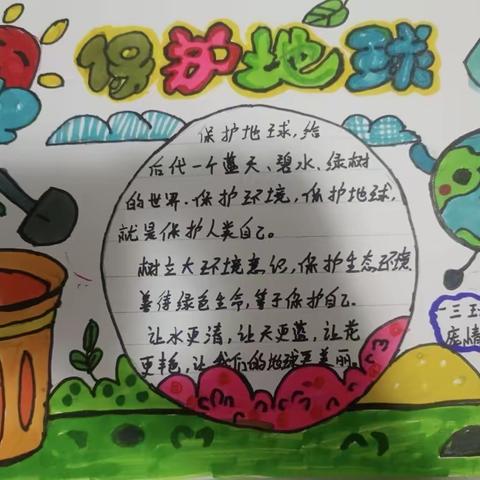 保护地球
保护地球,给
后代一个蓝天、碧水、绿树
的世界.保护环境,保护地球,
就是保护人类自己。
树立大环境意识,保护生态环境
善待绿色生命,等于保护自己.
让水更清,让天更蓝,让花
更艳,让我们的地球更美丽.
一三班
庞婧